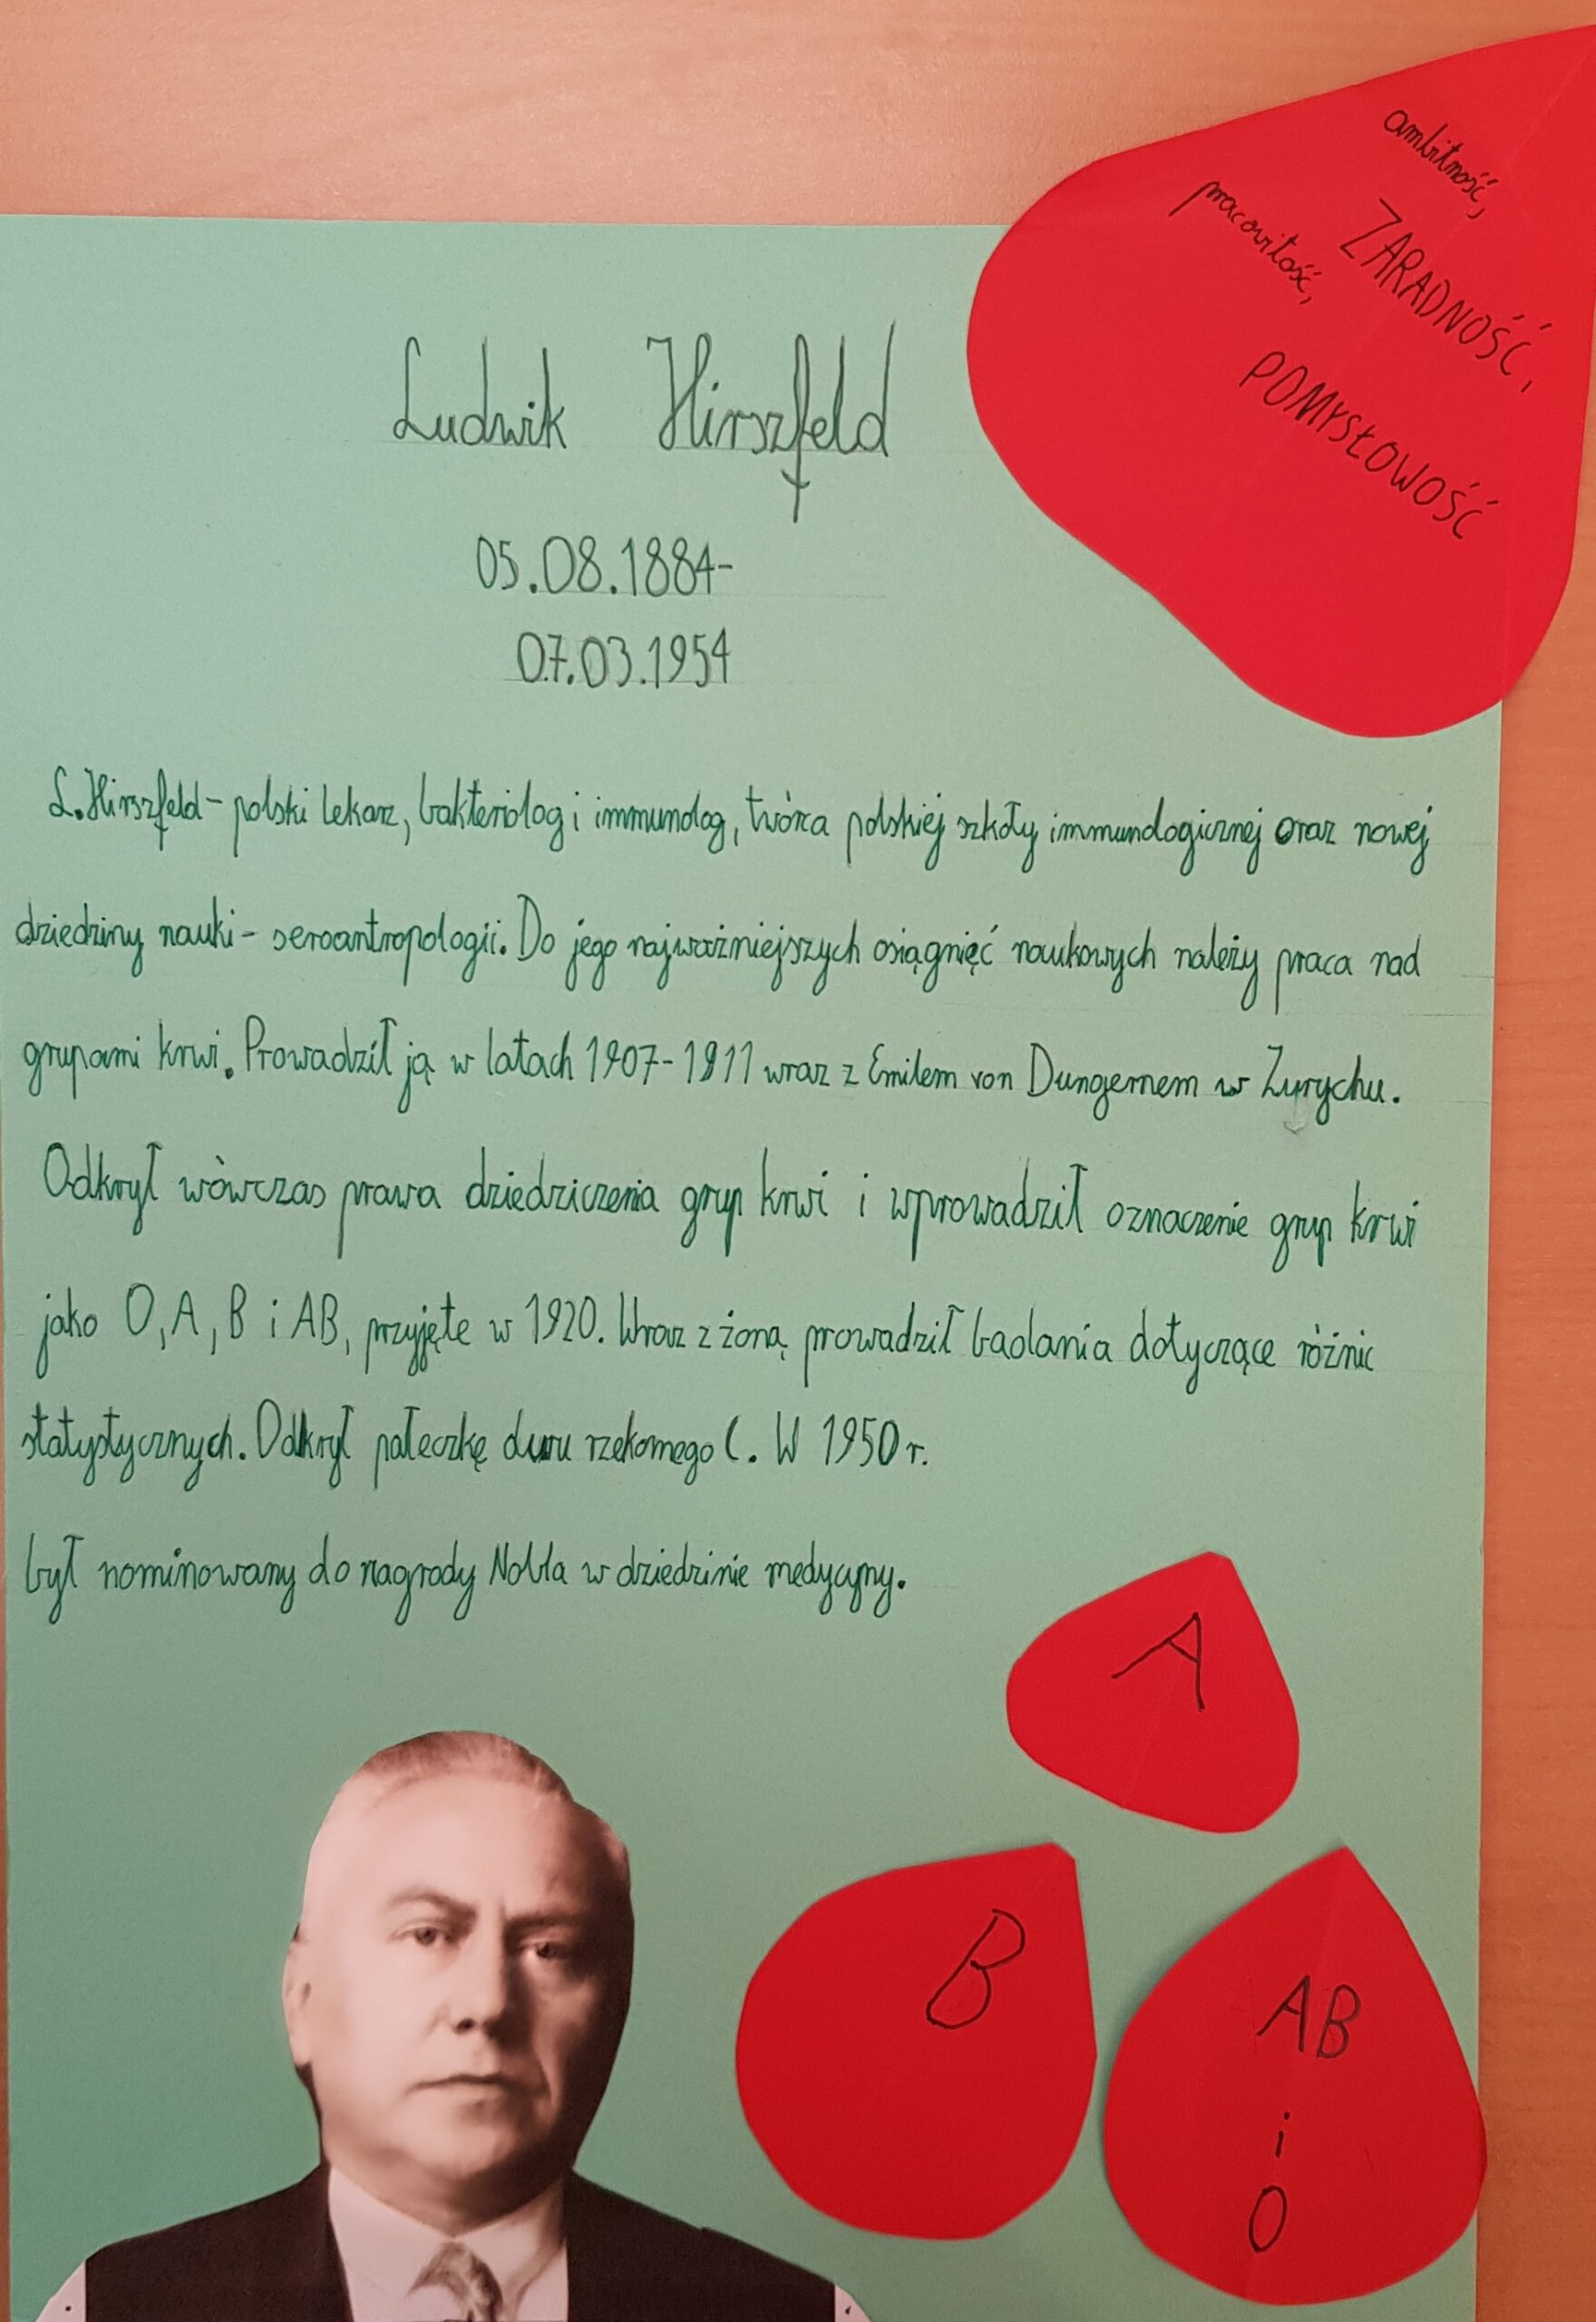 ambitność,
ZARADNOŚĆ,
pracowitość,
POMYSŁOWOŚĆ
Ludwik Hirszfeld
05.08.1884-
07.03.1954
L.Hirszfeld-polski lekarz, bakteriolog i immunolog, twórca polskiej szkoły immunologicznej oraz nowej
dziedziny nauki- seroantropologii. Do jego najważniejszych osiągnięć naukowych należy praca nad
grupami krwi. Prowadził ją w latach 1907-1911 wraz z Emilem von Dungernem w Zurychu.
Odkrył wówczas prawa dziedziczenia grup krwi i wprowadził oznaczenie grup krwi
jako O, A, B i AB, przyjęte w 1920. Wraz z żoną prowadził badania dotyczące różnic
statystycznych. Odkrył pałeczkę duru rzekomego C. W 1950 r.
był nominowany do nagrody Nobla w dziedzinie medycyny.
A
B
AB
i
O